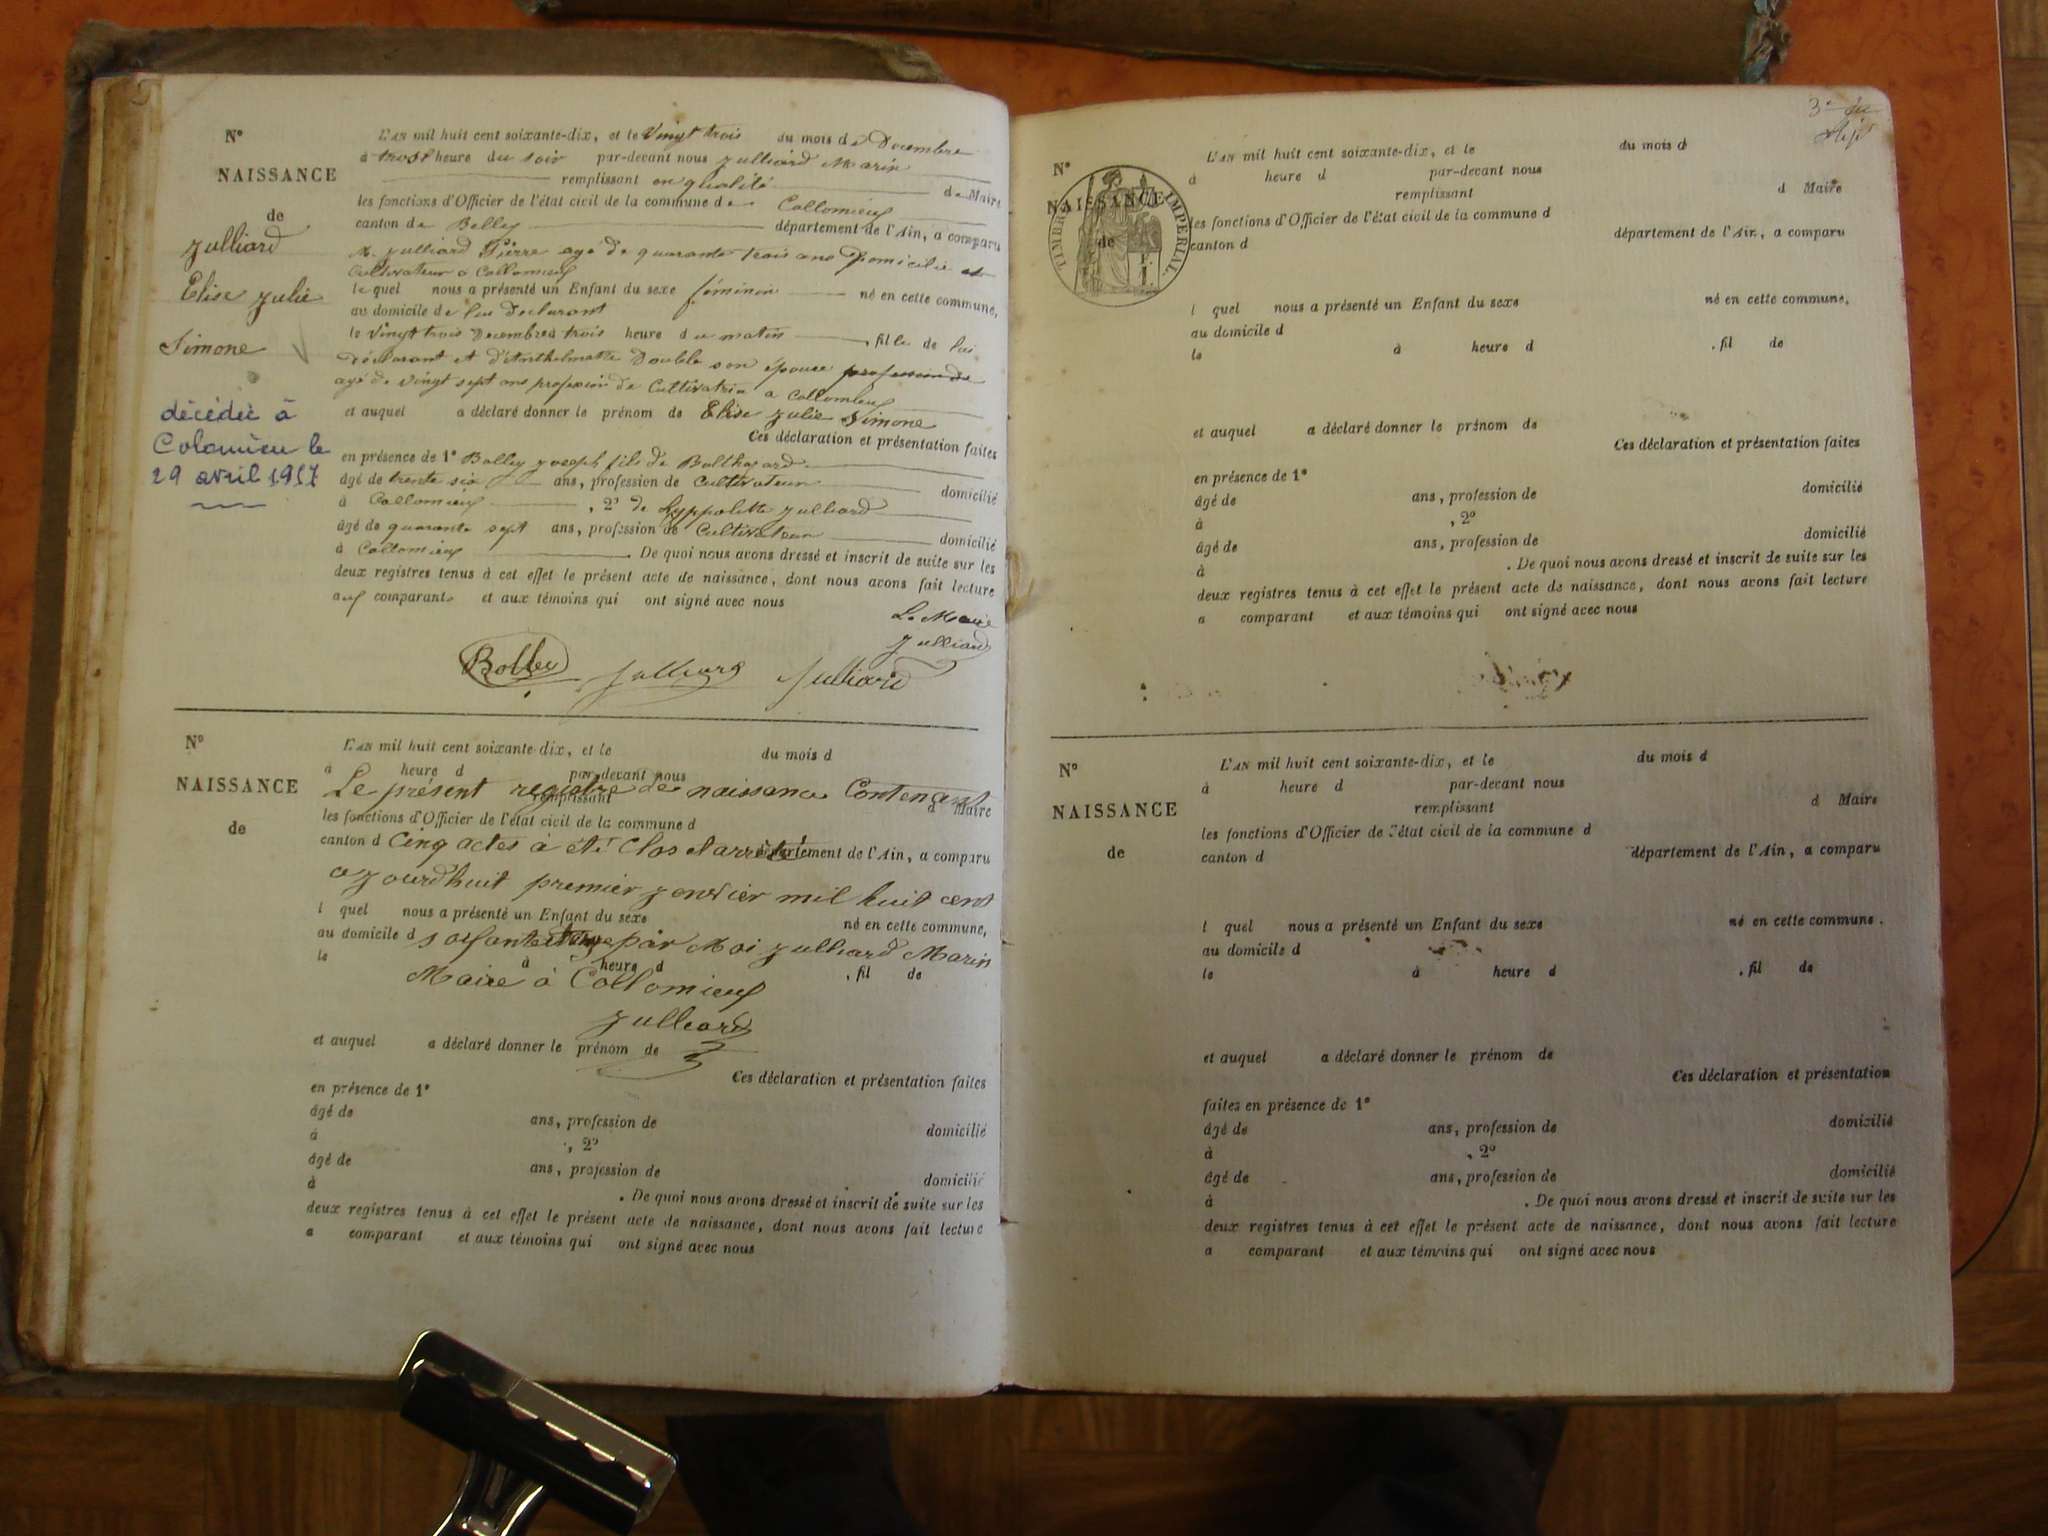 N°
NAISSANCE
de
Julliard
Elise Julie
Simone
décédée à
Colomieu le
29 avril 1957
L'AN mil huit cent soixante-dix, et le Vingt trois du mois de Decembre
à trois heure du soir par-devant nous Julliard Marin
remplissant en qualité de Maire
les fonctions d'Officier de l'état civil de la commune de Collomieux
canton de Belley département de l'Ain, a comparu
M. Julliard Pierre agé de quarante trois ans Domicilié et
Cultivateur a Collomieux
le quel nous a présenté un Enfant du sexe féminin né en cette commune,
au domicile de lui Declarant
le Vingt trois Decembre à trois heure du matin , fille de lui
Déclarant et d'Anthelmette Double son épouse profession de
agé de Vingt sept ans profession de Cultivatrice a Collomieux
et auquel a déclaré donner le prénom de Elise Julie Simone
Ces déclaration et présentation faites
en présence de 1° Bolley Joseph fils de Balthazard
âgé de trente six ans, profession de Cultivateur domicilié
à Collomieux , 2° de Hyppolitte Julliard
âgé de quarante sept ans, profession de Cultivateur domicilié
à Collomieux . De quoi nous avons dressé et inscrit de suite sur les
deux registres tenus à cet effet le présent acte de naissance, dont nous avons fait lecture
aux comparants et aux témoins qui ont signé avec nous
Le Maire
Julliard
Bolley Julliard Julliard
N°
NAISSANCE
de
L'AN mil huit cent soixante-dix, et le du mois d
à heure d par-devant nous
Le présent registre de naissance Contenant
remplissant d Maire
les fonctions d'Officier de l'état civil de la commune d
canton d département de l'Ain, a comparu
Cinq actes à été Clos et arrêté
ajourdhuit premier Janvier mil huit cent
l quel nous a présenté un Enfant du sexe né en cette commune,
au domicile d
soixante par Moi Julliard Marin
le à heure d , fil de
Maire à Collomieux
Julliard
et auquel a déclaré donner le prénom de
Ces déclaration et présentation faites
en présence de 1°
âgé de ans, profession de domicilié
à , 2°
âgé de ans, profession de domicilié
à . De quoi nous avons dressé et inscrit de suite sur les
deux registres tenus à cet effet le présent acte de naissance, dont nous avons fait lecture
a comparant et aux témoins qui ont signé avec nous
3e
N°
NAISSANCE
de
TIMBRE IMPERIAL.
L'AN mil huit cent soixante-dix, et le du mois d
à heure d par-devant nous
remplissant d Maire
les fonctions d'Officier de l'état civil de la commune d
canton d département de l'Ain, a comparu
l quel nous a présenté un Enfant du sexe né en cette commune,
au domicile d
le à heure d , fil de
et auquel a déclaré donner le prénom de
Ces déclaration et présentation faites
en présence de 1°
âgé de ans, profession de domicilié
à , 2°
âgé de ans, profession de domicilié
à . De quoi nous avons dressé et inscrit de suite sur les
deux registres tenus à cet effet le présent acte de naissance, dont nous avons fait lecture
a comparant et aux témoins qui ont signé avec nous
N°
NAISSANCE
de
L'AN mil huit cent soixante-dix, et le du mois d
à heure d par-devant nous
remplissant d Maire
les fonctions d'Officier de l'état civil de la commune d
canton d département de l'Ain, a comparu
l quel nous a présenté un Enfant du sexe né en cette commune.
au domicile d
le à heure d , fil de
et auquel a déclaré donner le prénom de
Ces déclaration et présentation
faites en présence de 1°
âgé de ans, profession de domicilié
à , 2°
âgé de ans, profession de domicilié
à . De quoi nous avons dressé et inscrit de suite sur les
deux registres tenus à cet effet le présent acte de naissance, dont nous avons fait lecture
a comparant et aux témoins qui ont signé avec nous